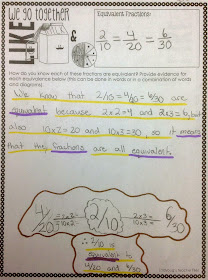 We go together
LIKE
&
Equivalent Fractions:
2/10 = 4/20 = 6/30
How do you know each of these fractions are equivalent? Provide evidence for
each equivalency below (this can be done in words or in a combination of words
and diagrams).
We know that 2/10 = 4/20 = 6/30 are
equivalent because 2x2=4 and 2x3=6, but
also 10x2=20 and 10x3=30 so it means
that the fractions are all equivalent.
4/20 =2x2= =10x2= 2/10 2x3= 10x3= 6/30
∴ 2/10 is
equivalent to
4/20 and 6/30